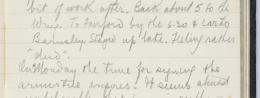 bit of work after. Back about 5 to the
To Fairford by the 5.20 & car to
Barnsley Stayed up late. Feeling rather
"dud".
On Monday the time for signing the
armistice expires. It seems almost